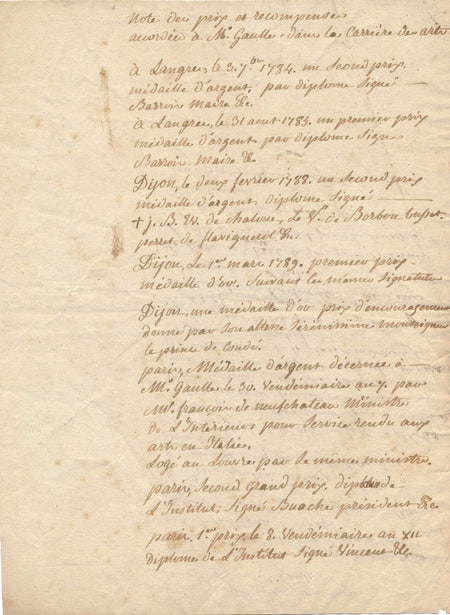 Note des prix et recompenses
accordés à Mr. Gaulle dans la Carriere des arts
à Langres, le 3. 7bre 1784. un Second prix
médaille d'argent, par diplome Signé
Barroir Maire &c.
à Langres, le 31 aout 1785, un premier prix
médaille d'argent par diplome Signé
Barroir Maire &c
Dijon, le deux fevrier 1788. un Second prix
médaille d'argent diplome Signés
+ j. B. Ev. de chalons, Le V. de Borbon busset
perret de flavignerot &c.
Dijon, le 1er mars 1789. premier prix
médaille d'or. Suivant les mêmes Signatures
Dijon, une médaille d'or prix d'encouragement
donné par Son altesse Sérénissime monseigneur
le prince de Condé.
paris, Médaille d'argent décernée à
Mr. Gaulle le 30. Vendémiaire an 7. par
Mr. françois de neufchateau Ministre
de L'Interieur pour Service rendu aux
arts en Italie.
Logé au Louvre par le même ministre.
paris, Second grand prix, diplome de
L'Institut. Signé Buache président &c
paris 1er prix le 8. Vendémiaire an XII
diplome de L'Institut Signé Vincent &c.